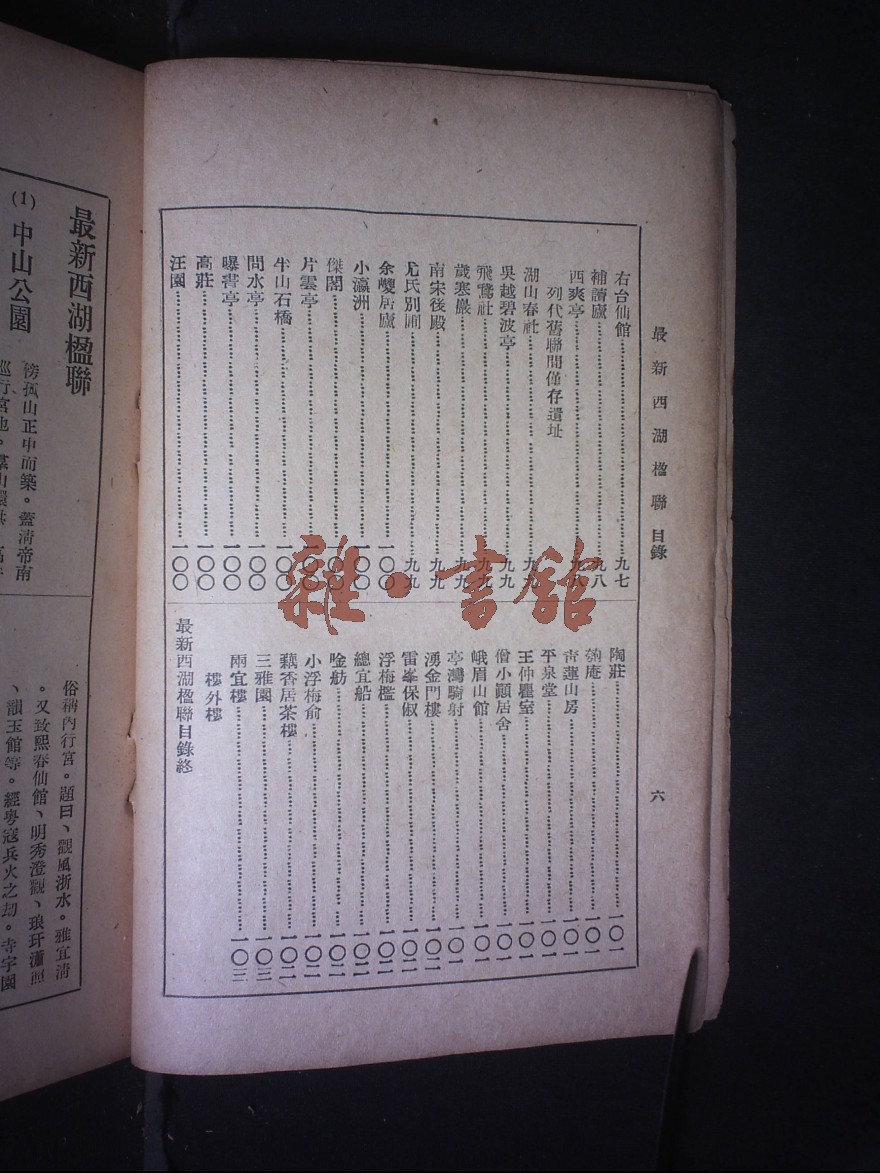 最新西湖楹聯目錄
六
右台仙館九七
補讀廬九八
西爽亭九八
列代舊聯間僅存遺址
湖山春社九九
吳越碧波亭九九
飛鷺社九九
歲寒巖九九
南宋後殿九九
尤氏別圃九九
余夔居廬一〇〇
小瀛洲一〇〇
傑閣一〇〇
片雲亭一〇〇
半山石橋一〇〇
問水亭一〇〇
曝書亭一〇〇
高莊一〇〇
汪園一〇〇
陶莊一〇一
菴一〇一
青蓮山房一〇一
平泉堂一〇一
王仲瞿室一〇一
僧小顚居舍一〇一
峨眉山館一〇一
亭灣騎射一〇一
湧金門樓一〇二
雷峯保俶一〇二
浮梅檻一〇二
總宜船一〇二
唫舫一〇二
小浮梅俞一〇二
藕香居茶樓一〇二
三雅園一〇三
兩宜樓一〇三
樓外樓
最新西湖楹聯目錄終
雜·書館
最新西湖楹聯
(1)中山公園
傍孤山正中而築。蓋淸帝南
巡行宮也。羣山環拱
俗稱內行宮。題曰、觀風浙水。雅宜淸
。又致熙春仙館、明秀澄觀、琅玕瀟照
、韻玉館等。經粤寇兵火之刧。寺宇園